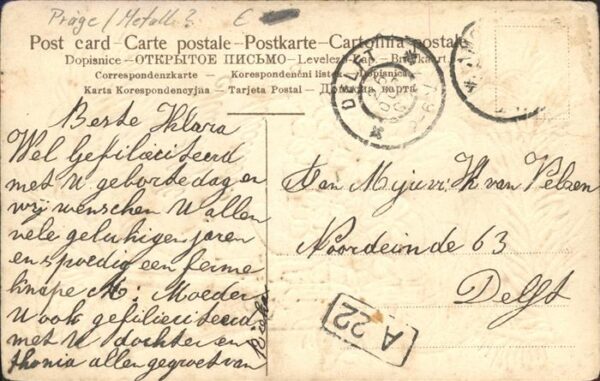 Präge/Metall?
Post card - Carte postale - Postkarte - Cartolina postale
Dopisnice - ОТКРЫТОЕ ПИСЬМО - Levelező-Lap. - Briefkaart
Correspondenzkarte - Korespondenční lístek - Dopisnica
Karta Korespondencyjna - Tarjeta Postal - Домисна карта
DELFT
Beste Klara
Wel Gefiliciteerd
met U geboortedag en
wij wenschen U allen
vele gelukigen jaren
en spoedig een ferme
knape M. Moeder
U ook gefiliciteerd
met U dochter en
thonia allen gegroet van
Aan Mejuvr. K van Velzen
Noordeinde 63
Delft
A 22